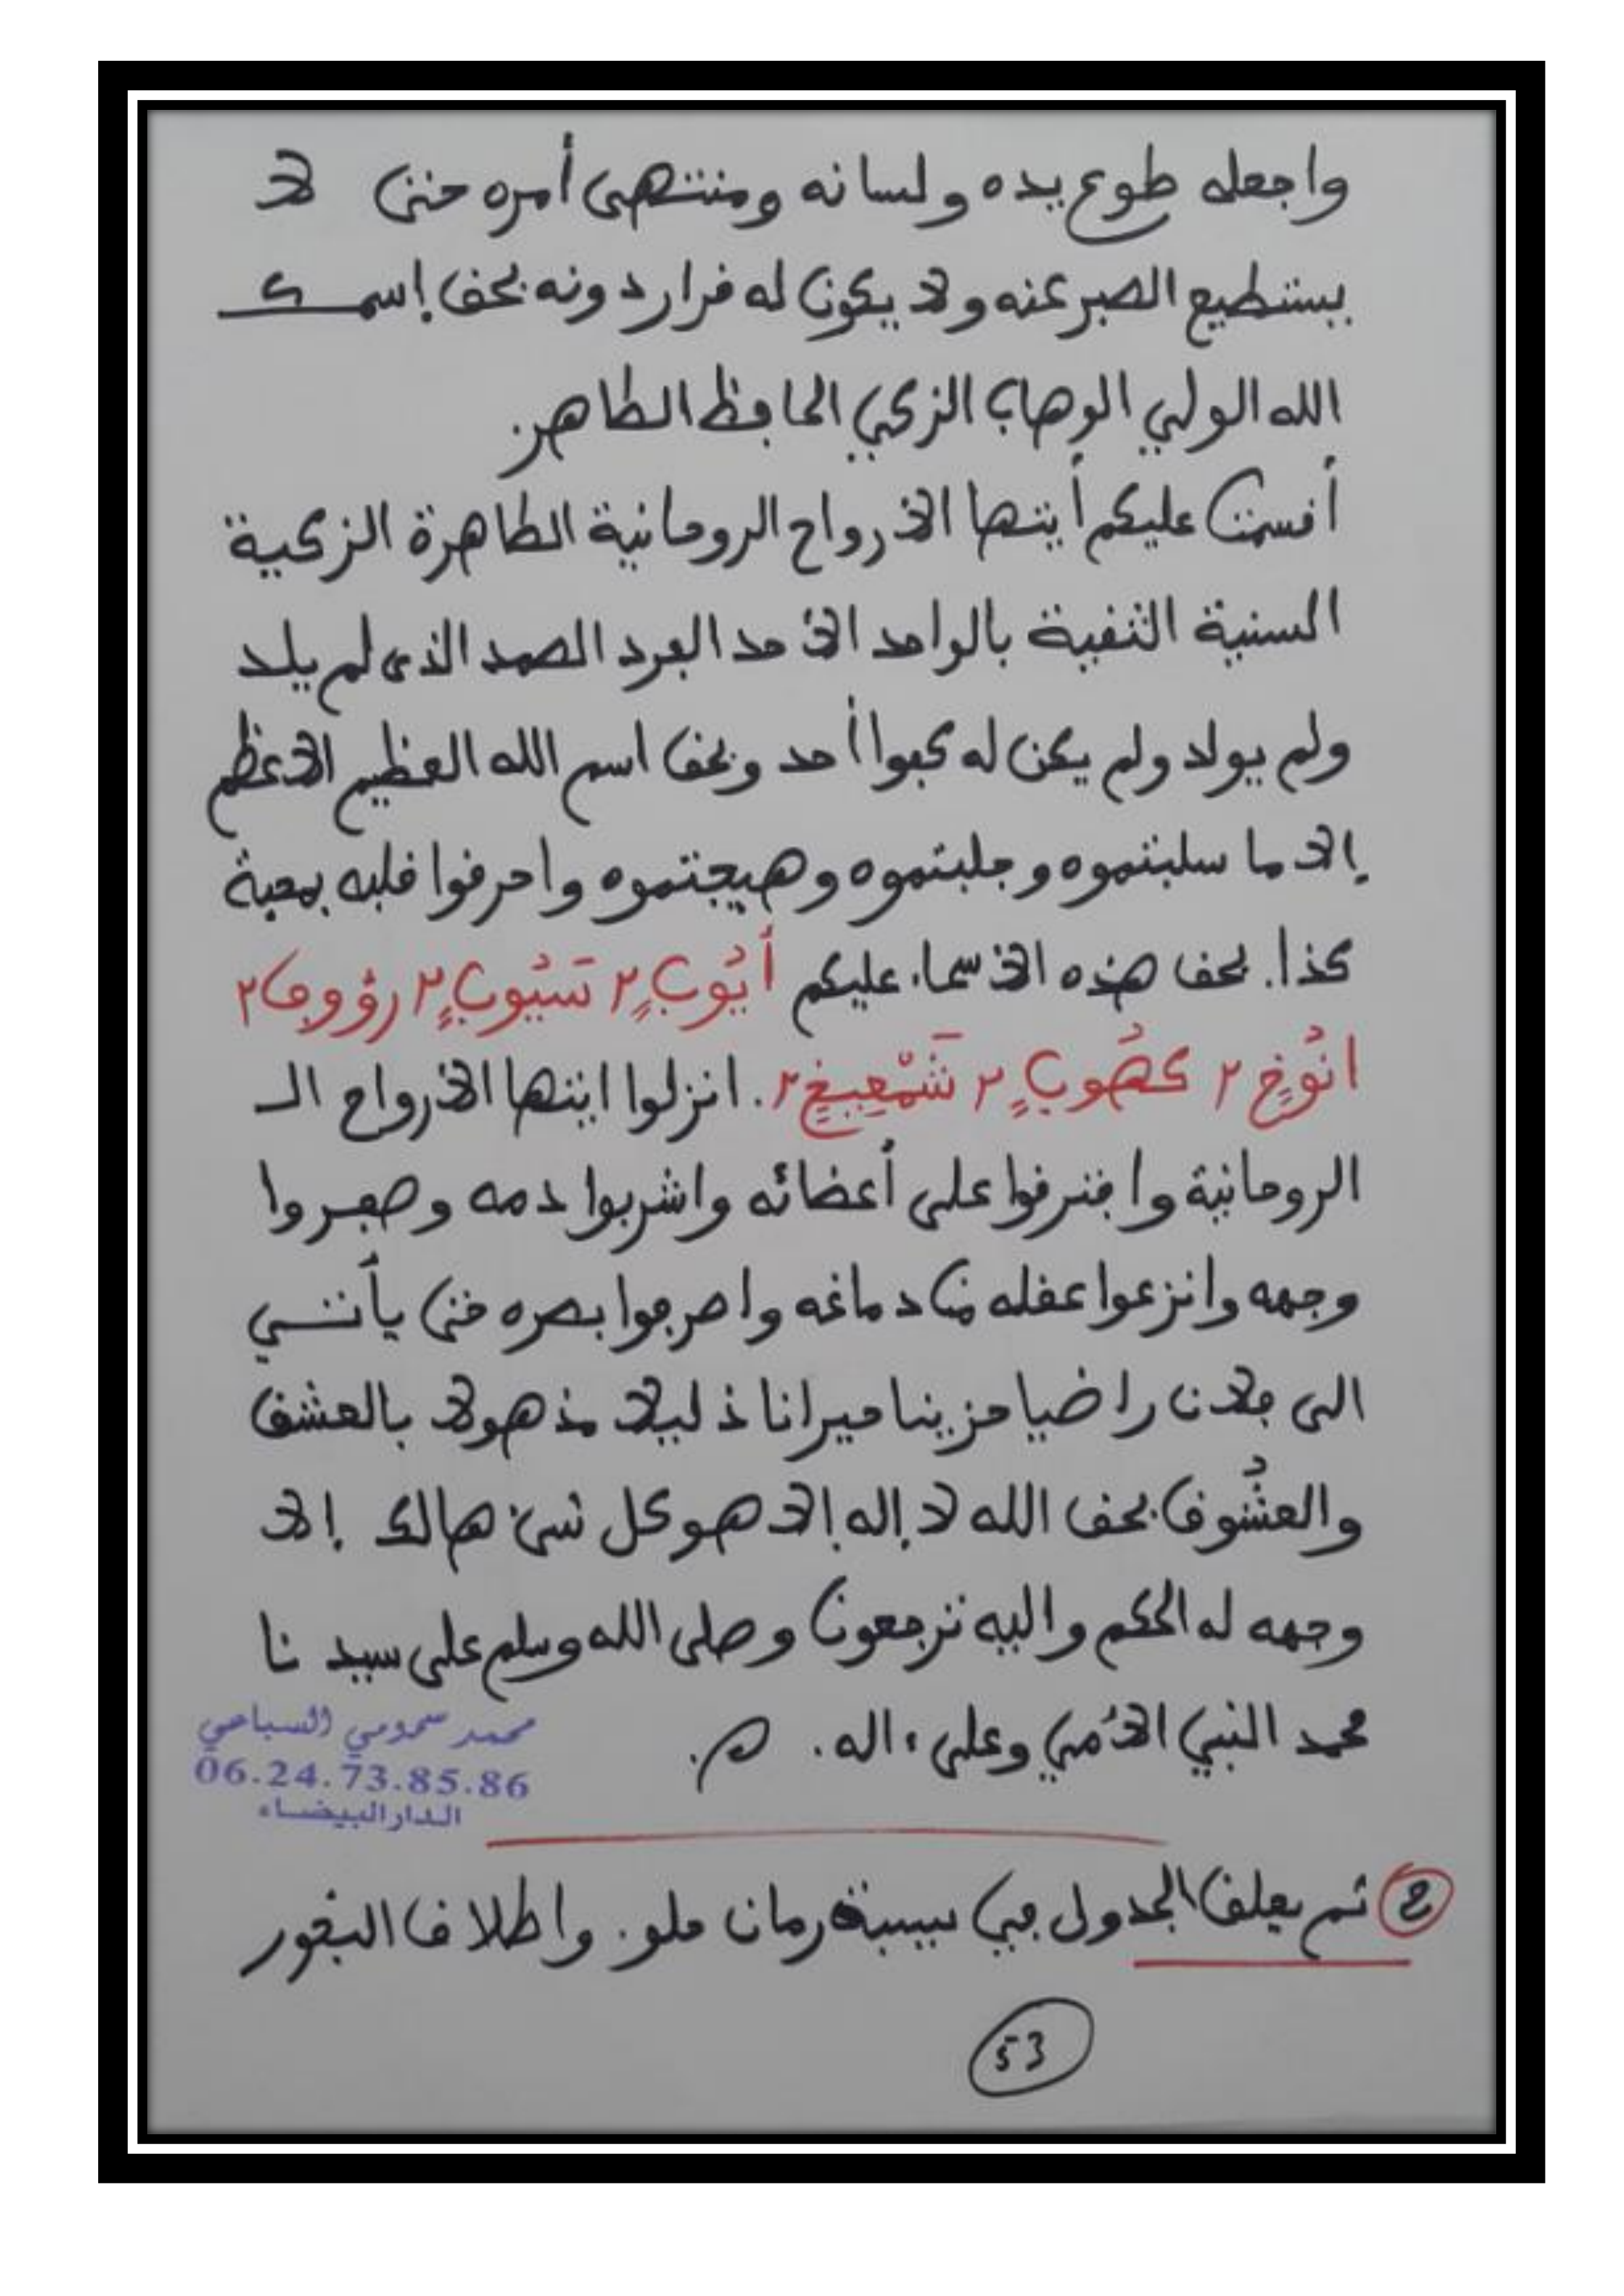 واجعله طوع يده ولسانه ومنتهى أمره حتى لا
يستطيع الصبر عنه ولا يكون له قرار دونه بحق إسمك
الله الولي الوهاب الزكي الحافظ الطاهر.
أقسمت عليكم أيتها الأرواح الروحانية الطاهرة الزكية
السنية النقية بالواحد الأحد الفرد الصمد الذي لم يلد
ولم يولد ولم يكن له كفوا أحد وبحق اسم الله العظيم الأعظم
إلا ما سلبتموه وجلبتموه وهيجتموه واحرقوا قلبه بمحبة
كذا. بحق هذه الأسماء عليكم أَيُّوبٍ ٢ ٢ رؤوف ٢
انُوخٍ ٢ كهُوبٍ ٢ ٢. انزلوا ايتها الأرواح الـ
الروحانية وافترقوا على أعضائه واشربوا دمه وصفروا
وجهه وانزعوا عقله من دماغه واصرفوا بصره حتى يأتـي
الى فلان راضيا حزينا حيرانا ذليلا مذهولا بالعشق
والعشُوق بحق الله لا إله إلا هو كل شيء هالك إلا
وجهه له الحكم واليه ترجعون وصلى الله وسلم على سيدنا
محمد النبي الأمي وعلى ءاله. م.
محمد سحومي السباعي
06.24.73.85.86
الدار البيضاء
2 ثم يعلق الجدول في رمان حلو. واطلاق البخور
53